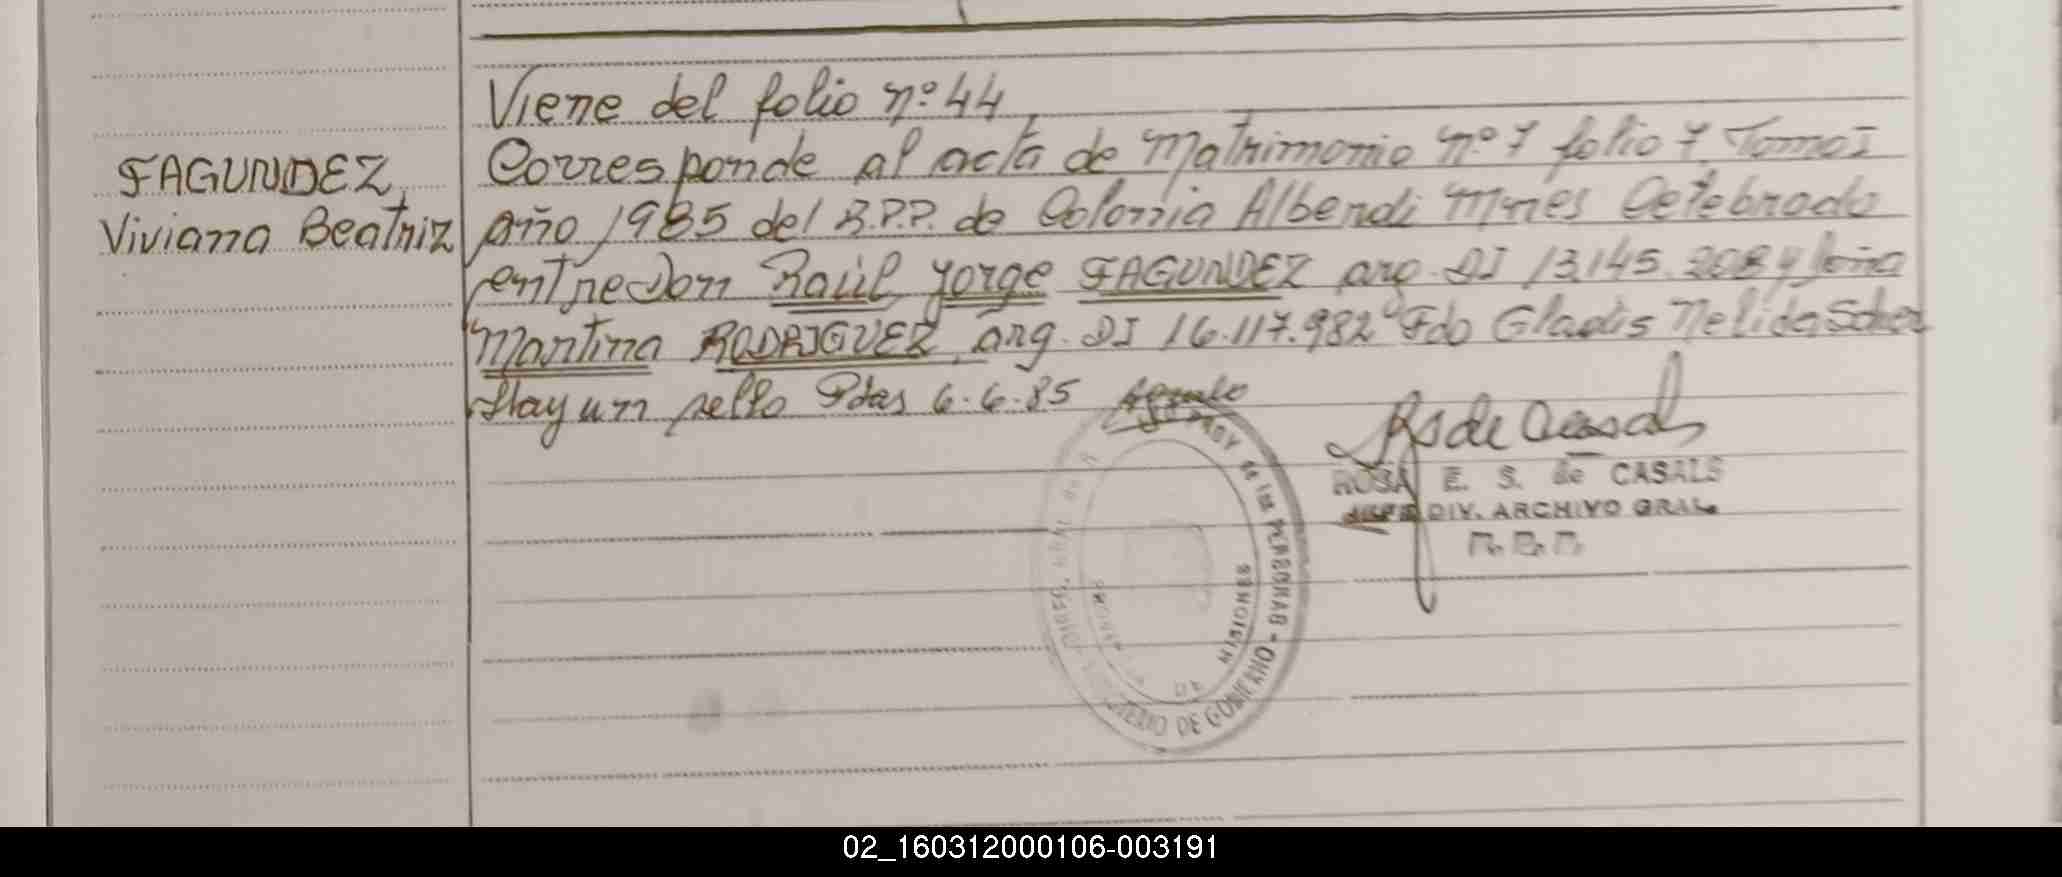 Viene del folio nº 44
FAGUNDEZ,
Viviana Beatriz
Corresponde al acta de Matrimonio nº 7 folio 7 Tomo I
año 1985 del R.P.P. de Colonia Alberdi Mnes Celebrado
entre Don Raúl Jorge FAGUNDEZ arg. DI 13.145.208 y Doña
Martina RODRIGUEZ arg. DI 16.117.982 Fdo Gladis Nelida
Hay un sello Pdas 6.6.85
ROSA E. S. de CASALS
JEFE DIV. ARCHIVO GRAL.
de las PERSONAS - MINISTERIO DE GOBIERNO
MISIONES
02_160312000106-003191